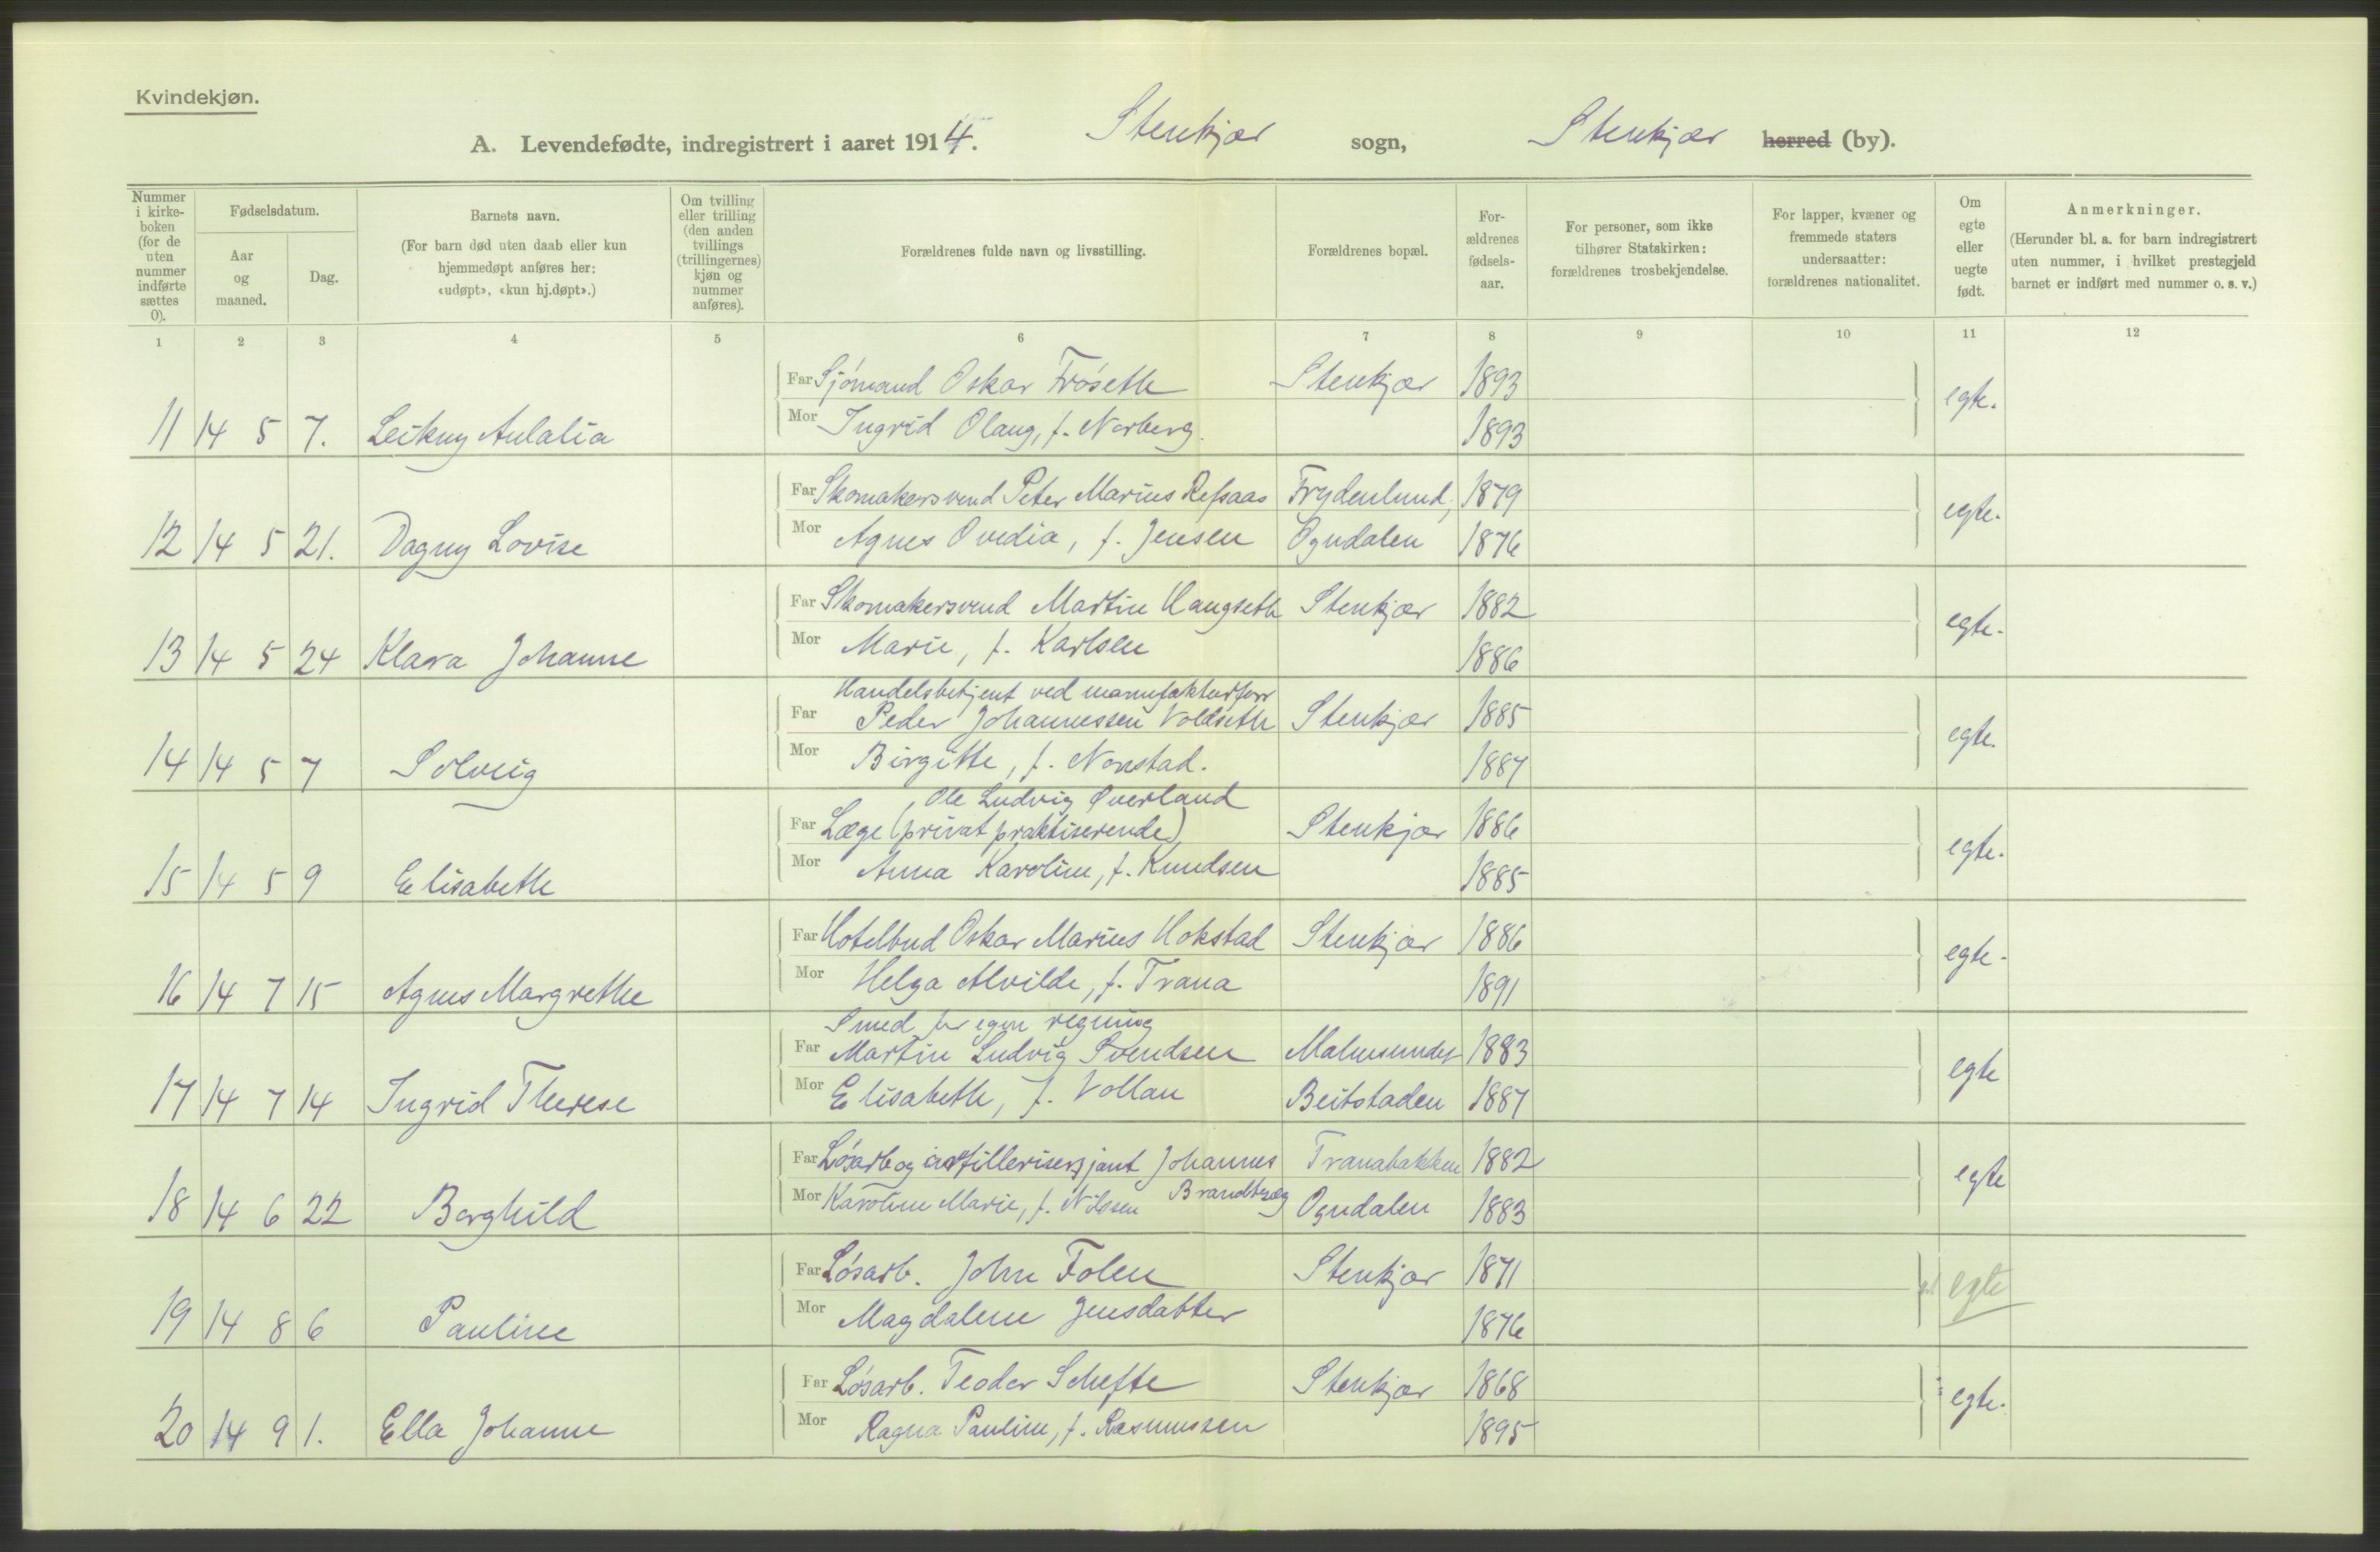 Kvindekjøn.
A. Levendefødte, indregistrert i aaret 1914. Stenkjær sogn, Stenkjær herred (by).
Nummer i kirke-boken (for de uten nummer indførte sættes 0).
Fødselsdatum.
Aar og maaned.
Dag.
Barnets navn.
(For barn død uten daab eller kun hjemmedøpt anføres her: «udøpt», «kun hj.døpt».)
Om tvilling eller trilling (den anden tvillings (trillingernes) kjøn og nummer anføres).
Forældrenes fulde navn og livsstilling.
Forældrenes bopæl.
For-ældrenes fødsels-aar.
For personer, som ikke tilhører Statskirken: forældrenes trosbekjendelse.
For lapper, kvæner og fremmede staters undersaatter: forældrenes nationalitet.
Om egte eller uegte født.
Anmerkninger.
(Herunder bl. a. for barn indregistrert uten nummer, i hvilket prestegjeld barnet er indført med nummer o. s. v.)
1 2 3 4 5 6 7 8 9 10 11 12
Far Sjømand Oskar Frøseth Stenkjær 1893
11 14 5 7. Leikny Aulalia Mor Ingrid Olaug, f. Norberg. 1893 egte.
Far Skomakersvend Peter Marius Refsaas Frydenlund, 1879
12 14 5 21. Dagny Lovise Mor Agnes Ovedia, f. Jensen Ogndalen 1876 egte.
Far Skomakersvend Martin Haugseth Stenkjær 1882
13 14 5 24 Klara Johanne Mor Marie, f. Karlsen 1886 egte.
Handelsbetjent ved manufakturforr
Far Peder Johannessen Voldseth Stenkjær 1885
14 14 5 7 Solveig Mor Birgitte, f. Nonstad. 1887 egte.
Ole Ludvig Øverland
Far Læge (privat praktiserende) Stenkjær 1886
15 14 5 9 Elisabeth Mor Anna Karoline, f. Knudsen 1885 egte.
Far Hotelbud Oskar Marius Hokstad Stenkjær 1886
16 14 7 15 Agnes Margrethe Mor Helga Alvilde, f. Trana 1891 egte.
Smed for egen regning
Far Martin Ludvig Svendsen Malmsundet 1883
17 14 7 14 Ingrid Therese Mor Elisabeth, f. Vollan Beitstaden 1887 egte
Far Løsarb og artillerisersjant Johannes Tranabakken 1882
Brandtzæg
18 14 6 22 Borghild Mor Karoline Marie, f. Nilssen Ogndalen 1883 egte
Far Løsarb. John Folen Stenkjær 1871
19 14 8 6 Pauline Mor Magdalene Jensdatter 1876 egte
Far Løsarb. Teodor Schefte Stenkjær 1868
20 14 9 1. Ella Johanne Mor Ragna Pauline, f. Rasmussen 1895 egte.